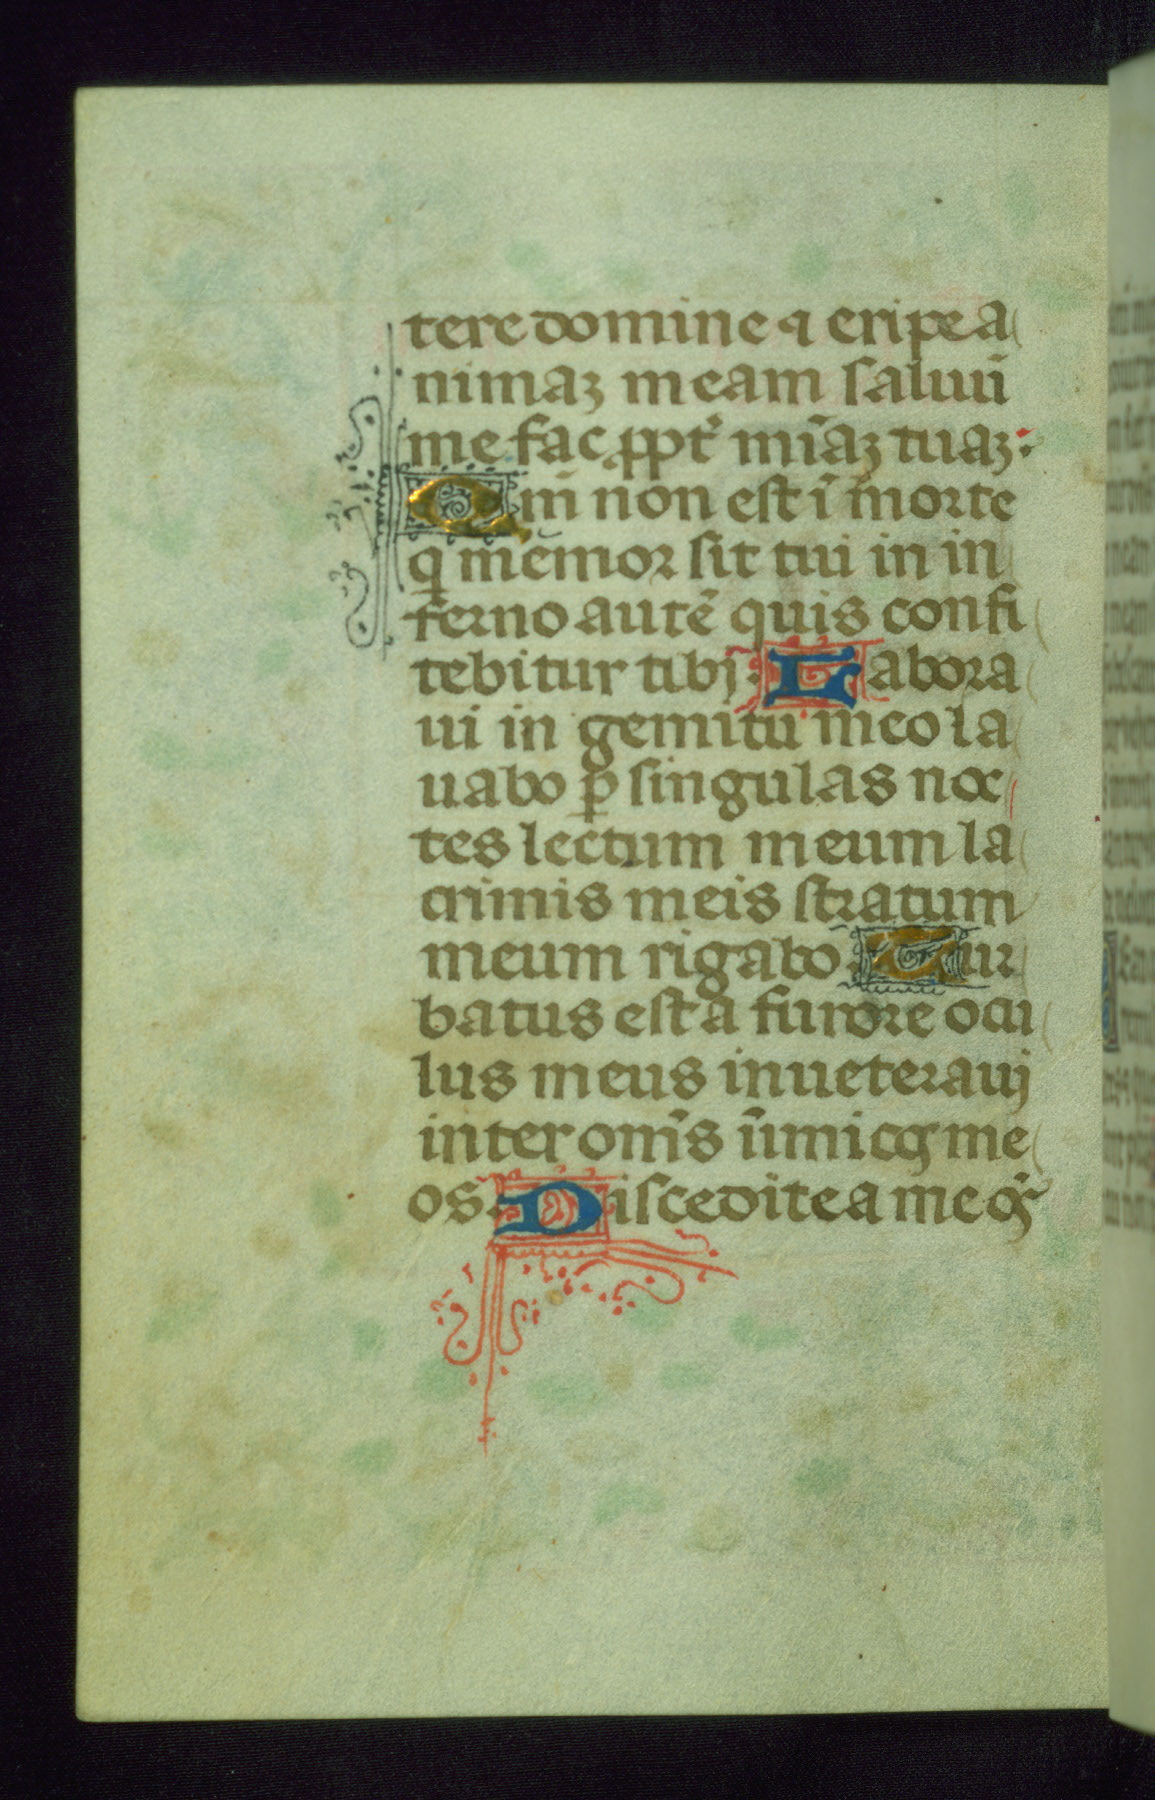 tere domine ⁊ eripe a
nimaꝫ meam saluū
me fac ꝓpt̉ mĩaꝫ tuaꝫ.
Qm̃ non est ĩ morte
q memor sit tui in in
ferno autẽ quis confi
tebitur tibi. Labora
ui in gemitu meo la
uabo ꝑ singulas noc
tes lectum meum la
crimis meis stratum
meum rigabo Tur
batus est a furore ocu
lus meus inueteraui
inter om̃s inimicos me
os. Discedite a me